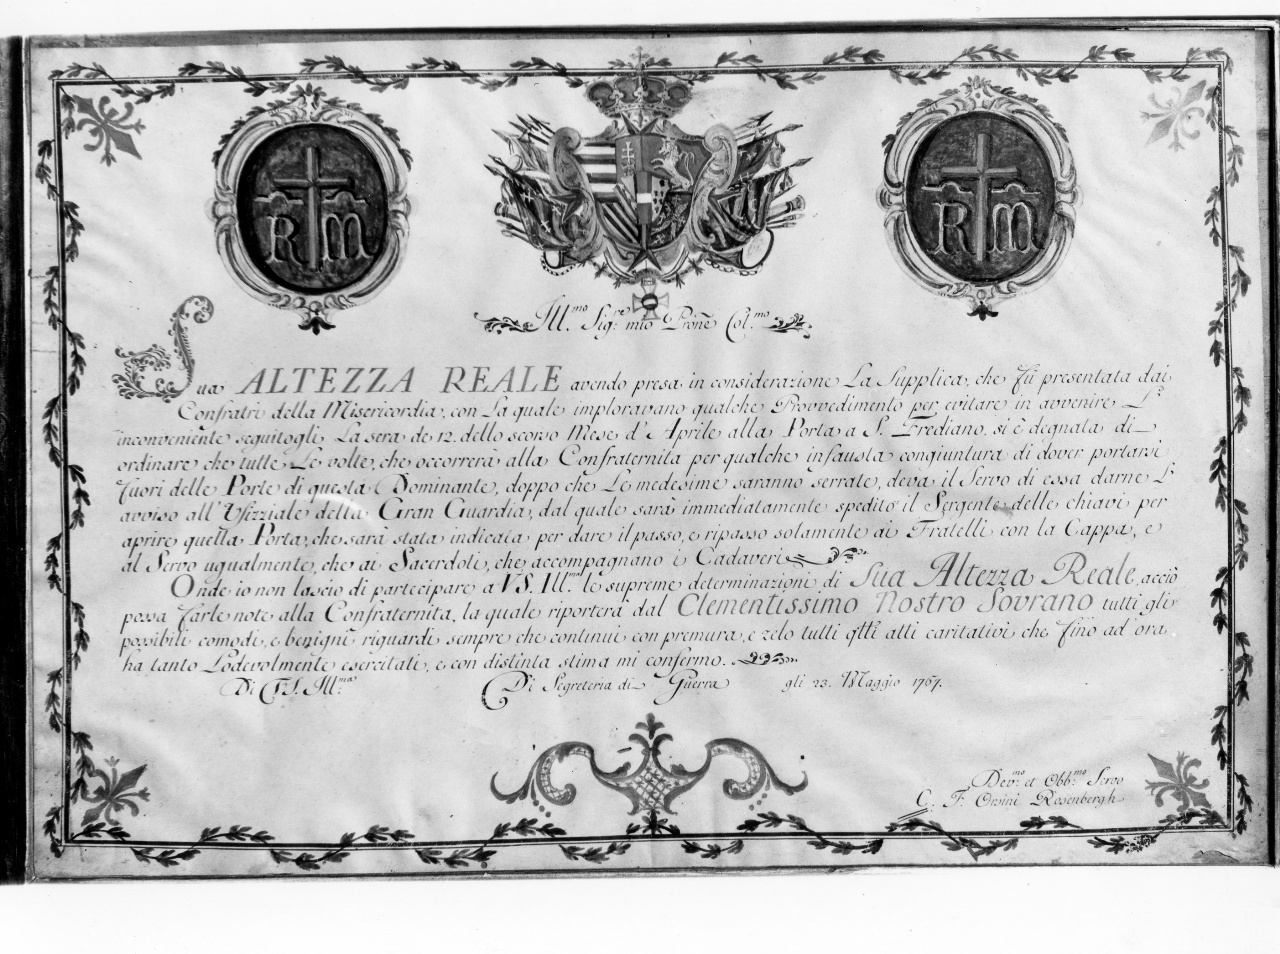 RM
RM
Ill.mo Sig.re mio Prõne Col.mo
Sua ALTEZZA REALE avendo presa in considerazione La Supplica, che fù presentata dai
Confratri della Misericordia, con La quale imploravano qualche Provvedimento per evitare in avvenire L'
inconveniente seguitogli La sera de 12. dello scorso Mese d'Aprile alla Porta a S. Frediano, si è degnata di
ordinare che tutte Le volte, che occorrerà alla Confraternita per qualche infausta congiuntura di dover portarsi
fuori delle Porte di questa Dominante, doppo che Le medesime saranno serrate, deva il Servo di essa darne L'
avviso all'Ufizziale della Gran Guardia, dal quale sarà immediatamente spedito il Sergente delle chiavi per
aprire quella Porta, che sarà stata indicata per dare il passo, e ripasso solamente ai Fratelli con la Cappa, e
al Servo ugualmente, che ai Sacerdoti, che accompagnano i Cadaveri
Onde io non lascio di partecipare a VS. Ill.ma le supreme determinazioni di Sua Altezza Reale, acciò
possa farle note alla Confraternita, la quale riporterà dal Clementissimo Nostro Sovrano tutti gli
possibili comodi, e benigni riguardi sempre che continui con premura, e zelo tutti q̃tti atti caritativi che fino ad'ora
ha tanto Lodevolmente esercitati, e con distinta stima mi confermo.
Di VS. Ill.ma Di Segreteria di Guerra gli 23. Maggio 1767.
Dev.mo et Obb.mo Servo
C. F. Orsini Rosenbergh